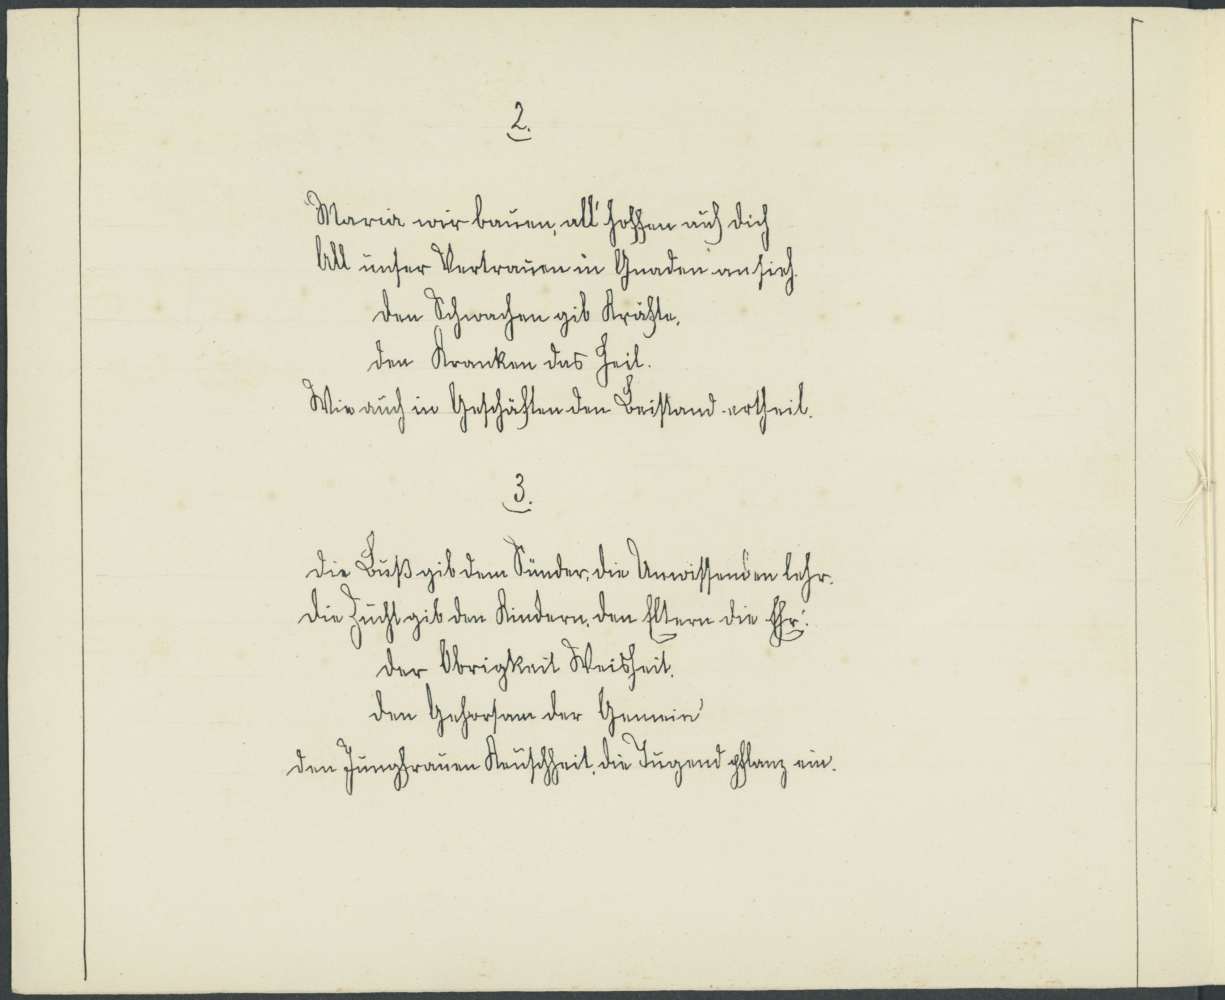 2.
Maria wir bauen, all' hoffen auf dich
All unser Vertrauen in Gnaden ansieh.
den Schwachen gib Kräfte,
den Kranken das Heil.
Wie auch in Geschäften den Beistand ertheil.
3.
die Buß gib dem Sünder, die Unwissenden lehr.
die Zucht gib den Kindern, den Eltern die Ehr!
der Obrigkeit Weisheit,
den Gehorsam der Gemein'
den Jungfrauen Keuschheit, die Tugend pflanz ein.